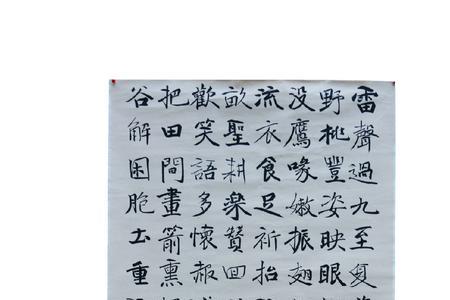 雷聲過九至复
野桃豐姿映眼
没鷹喙嫩振翅
流衣食足祈抬
畝聖耕樂贊回
歡笑語多懷赧
把田間畫箭熏
谷解困胞土重